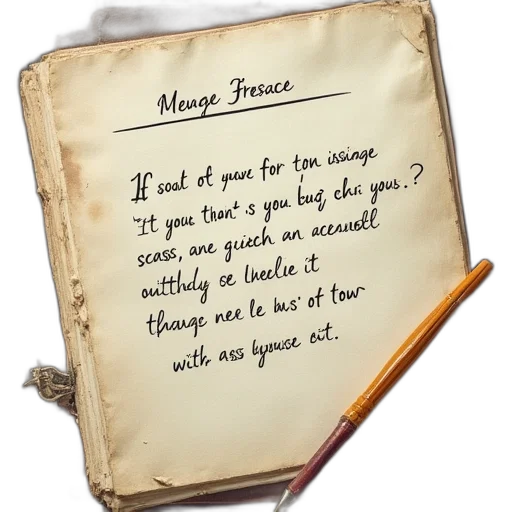 Meuge Fresace
If soat of yuve for ton issinge
It your thant's you. buq, chri yous.?
scass, ane guich an aceusdll
outthdy se lneclie it
thauge nee le bus' of tow
with ass byouse cit.